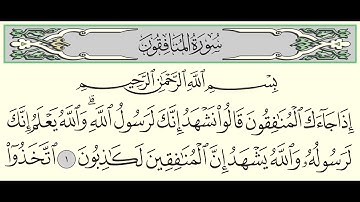 سُورَةُ المُنَافِقُونَ
بِسْمِ ٱللَّهِ ٱلرَّحْمَٰنِ ٱلرَّحِيمِ
إِذَا جَآءَكَ ٱلْمُنَٰفِقُونَ قَالُوا۟ نَشْهَدُ إِنَّكَ لَرَسُولُ ٱللَّهِ ۗ وَٱللَّهُ يَعْلَمُ إِنَّكَ
لَرَسُولُهُۥ وَٱللَّهُ يَشْهَدُ إِنَّ ٱلْمُنَٰفِقِينَ لَكَٰذِبُونَ ١ ٱتَّخَذُوٓا۟